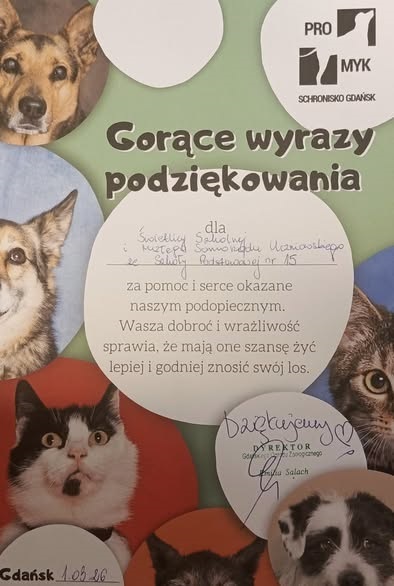 PRO
MYK
SCHRONISKO GDAŃSK
Gorące wyrazy
podziękowania
dla
Świetlicy Szkolnej
i małego Samorządu Uczniowskiego
ze Szkoły Podstawowej nr 15
za pomoc i serce okazane
naszym podopiecznym.
Wasza dobroć i wrażliwość
sprawia, że mają one szansę żyć
lepiej i godniej znosić swój los.
Dziękujemy
DYREKTOR
Gdańskiego Ogrodu Zoologicznego
Emilia Salach
Gdańsk